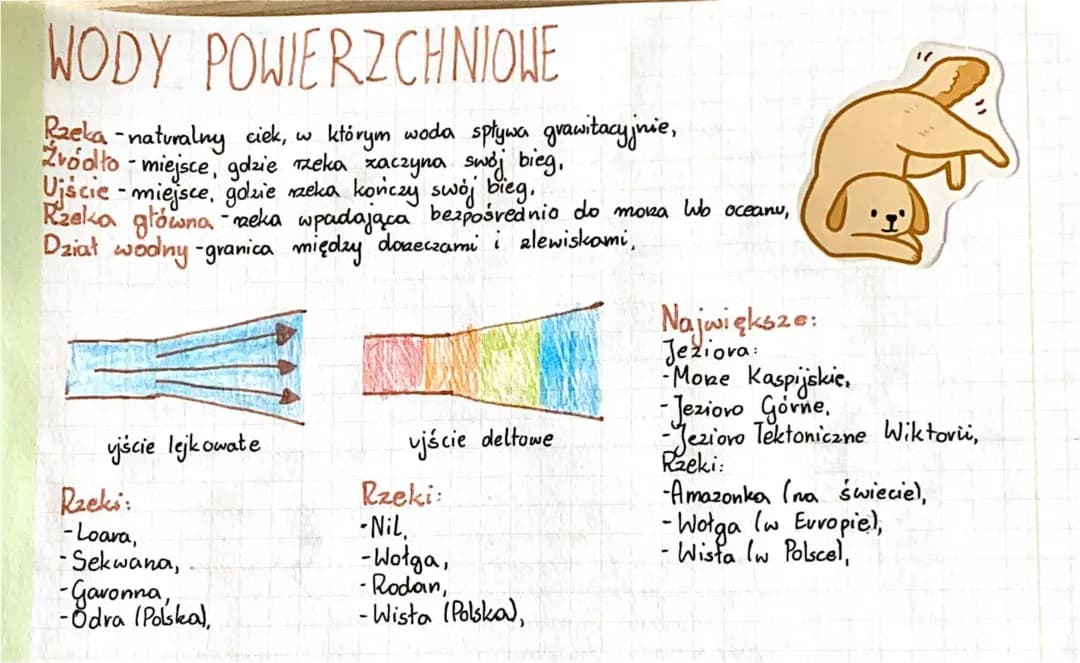 WODY POWIERZCHNIOWE
Rzeka - naturalny ciek, w którym woda spływa grawitacyjnie,
Źródło - miejsce, gdzie rzeka zaczyna swój bieg,
Ujście - miejsce, gdzie rzeka kończy swój bieg,
Rzeka główna - rzeka wpadająca bezpośrednio do morza lub oceanu,
Dział wodny - granica między dorzeczami i zlewiskami,
ujście lejkowate
Rzeki:
- Loara,
- Sekwana,
- Garonna,
- Odra (Polska),
ujście deltowe
Rzeki:
- Nil,
- Wołga,
- Rodan,
- Wisła (Polska),
Największe:
Jeziora:
- Morze Kaspijskie,
- Jezioro Górne,
- Jezioro Tektoniczne Wiktorii,
Rzeki:
- Amazonka (na świecie),
- Wołga (w Europie),
- Wisła (w Polsce),